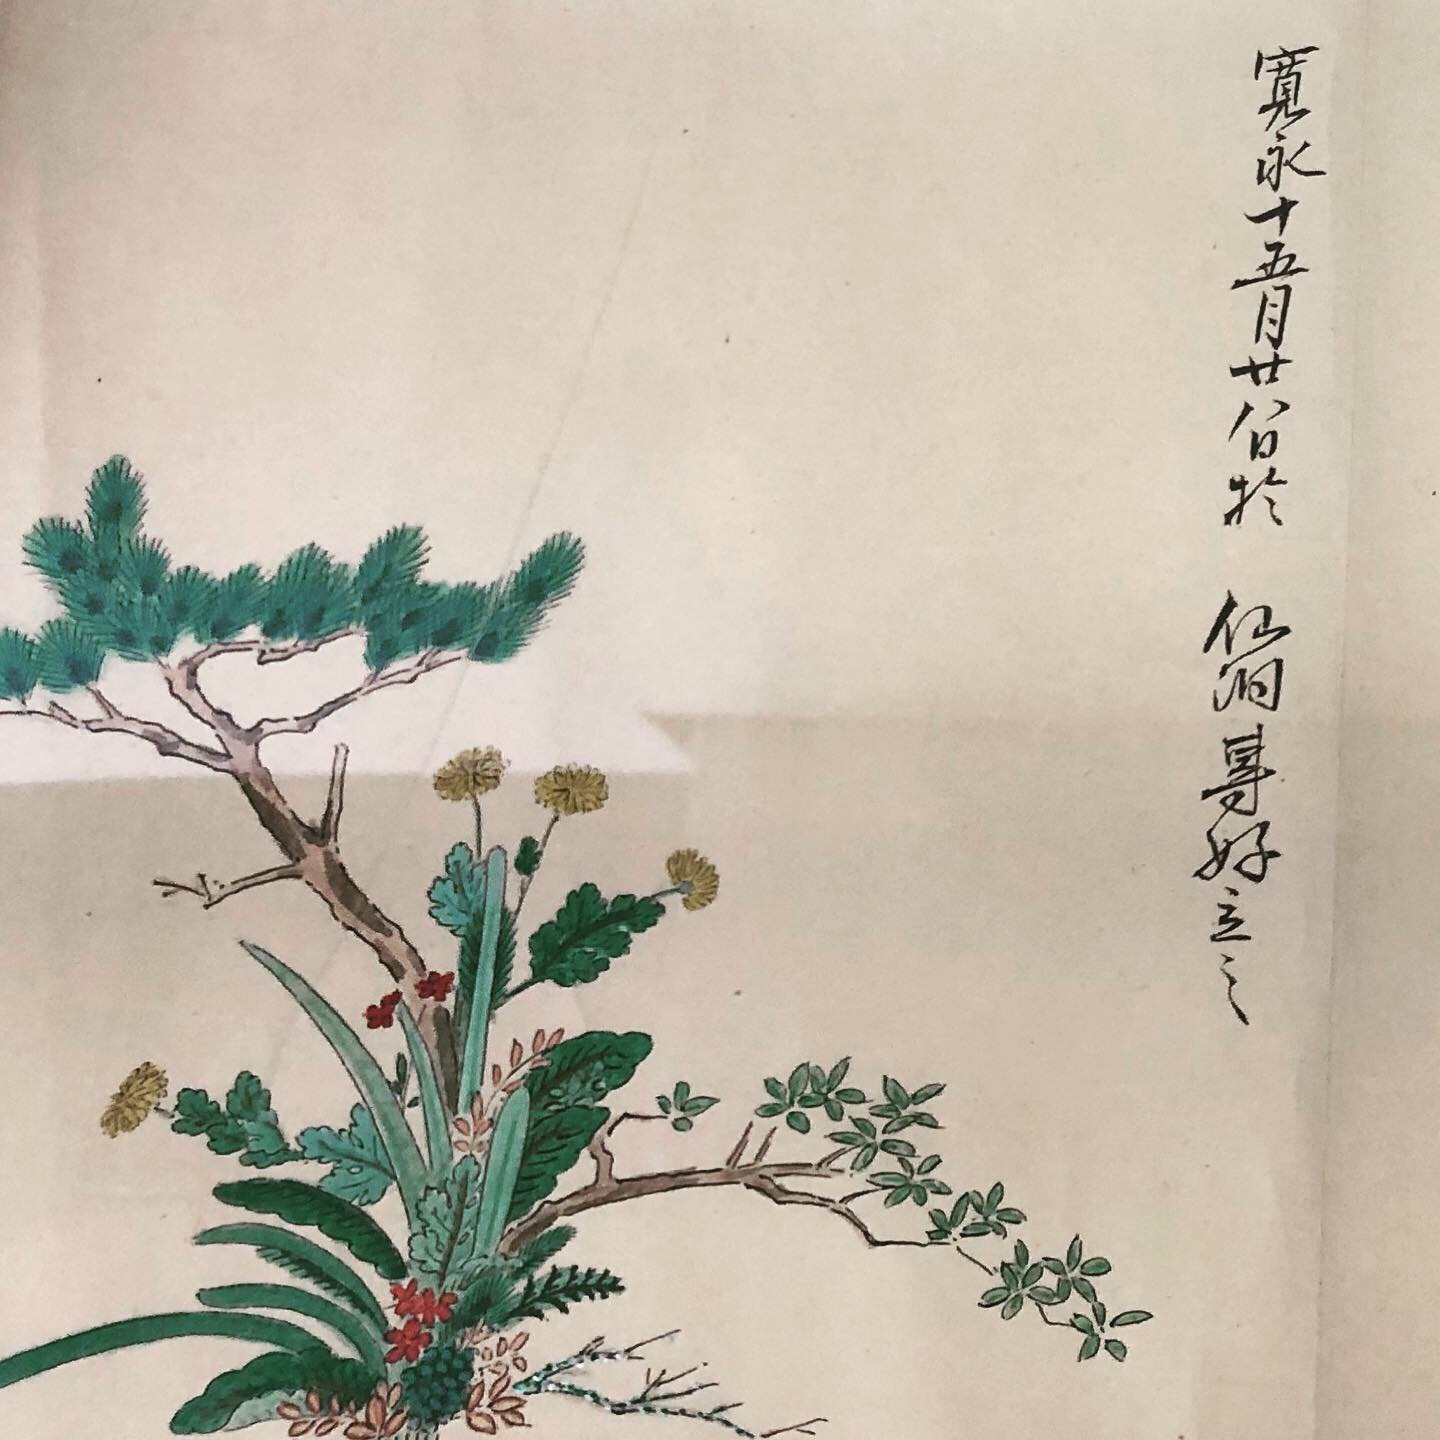 寛永十五月廿八日於 仙洞専好立之